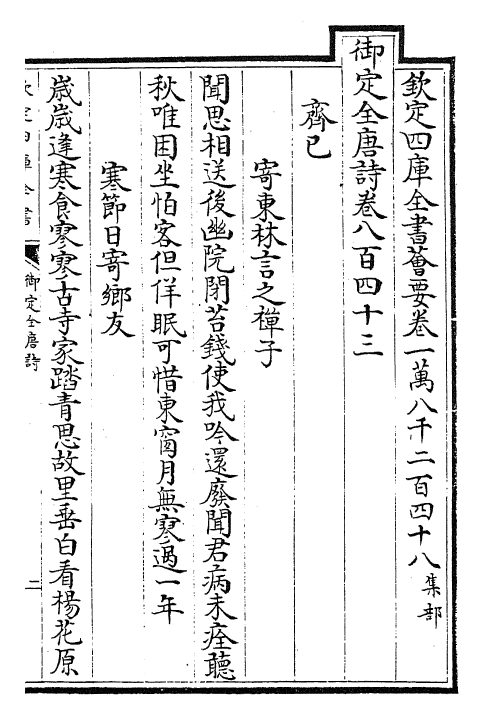 欽定四庫全書薈要卷一萬八千二百四十八 集部
御定全唐詩卷八百四十三
齊己
寄東林言之禪子
聞思相送後幽院閉苔錢使我吟還廢聞君病未痊聽
秋唯困坐怕客但佯眠可惜東窗月無寥過一年
寒節日寄鄉友
嵗嵗逢寒食寥寥古寺家踏青思故里垂白看楊花原
欽定四庫全書
御定全唐詩
二